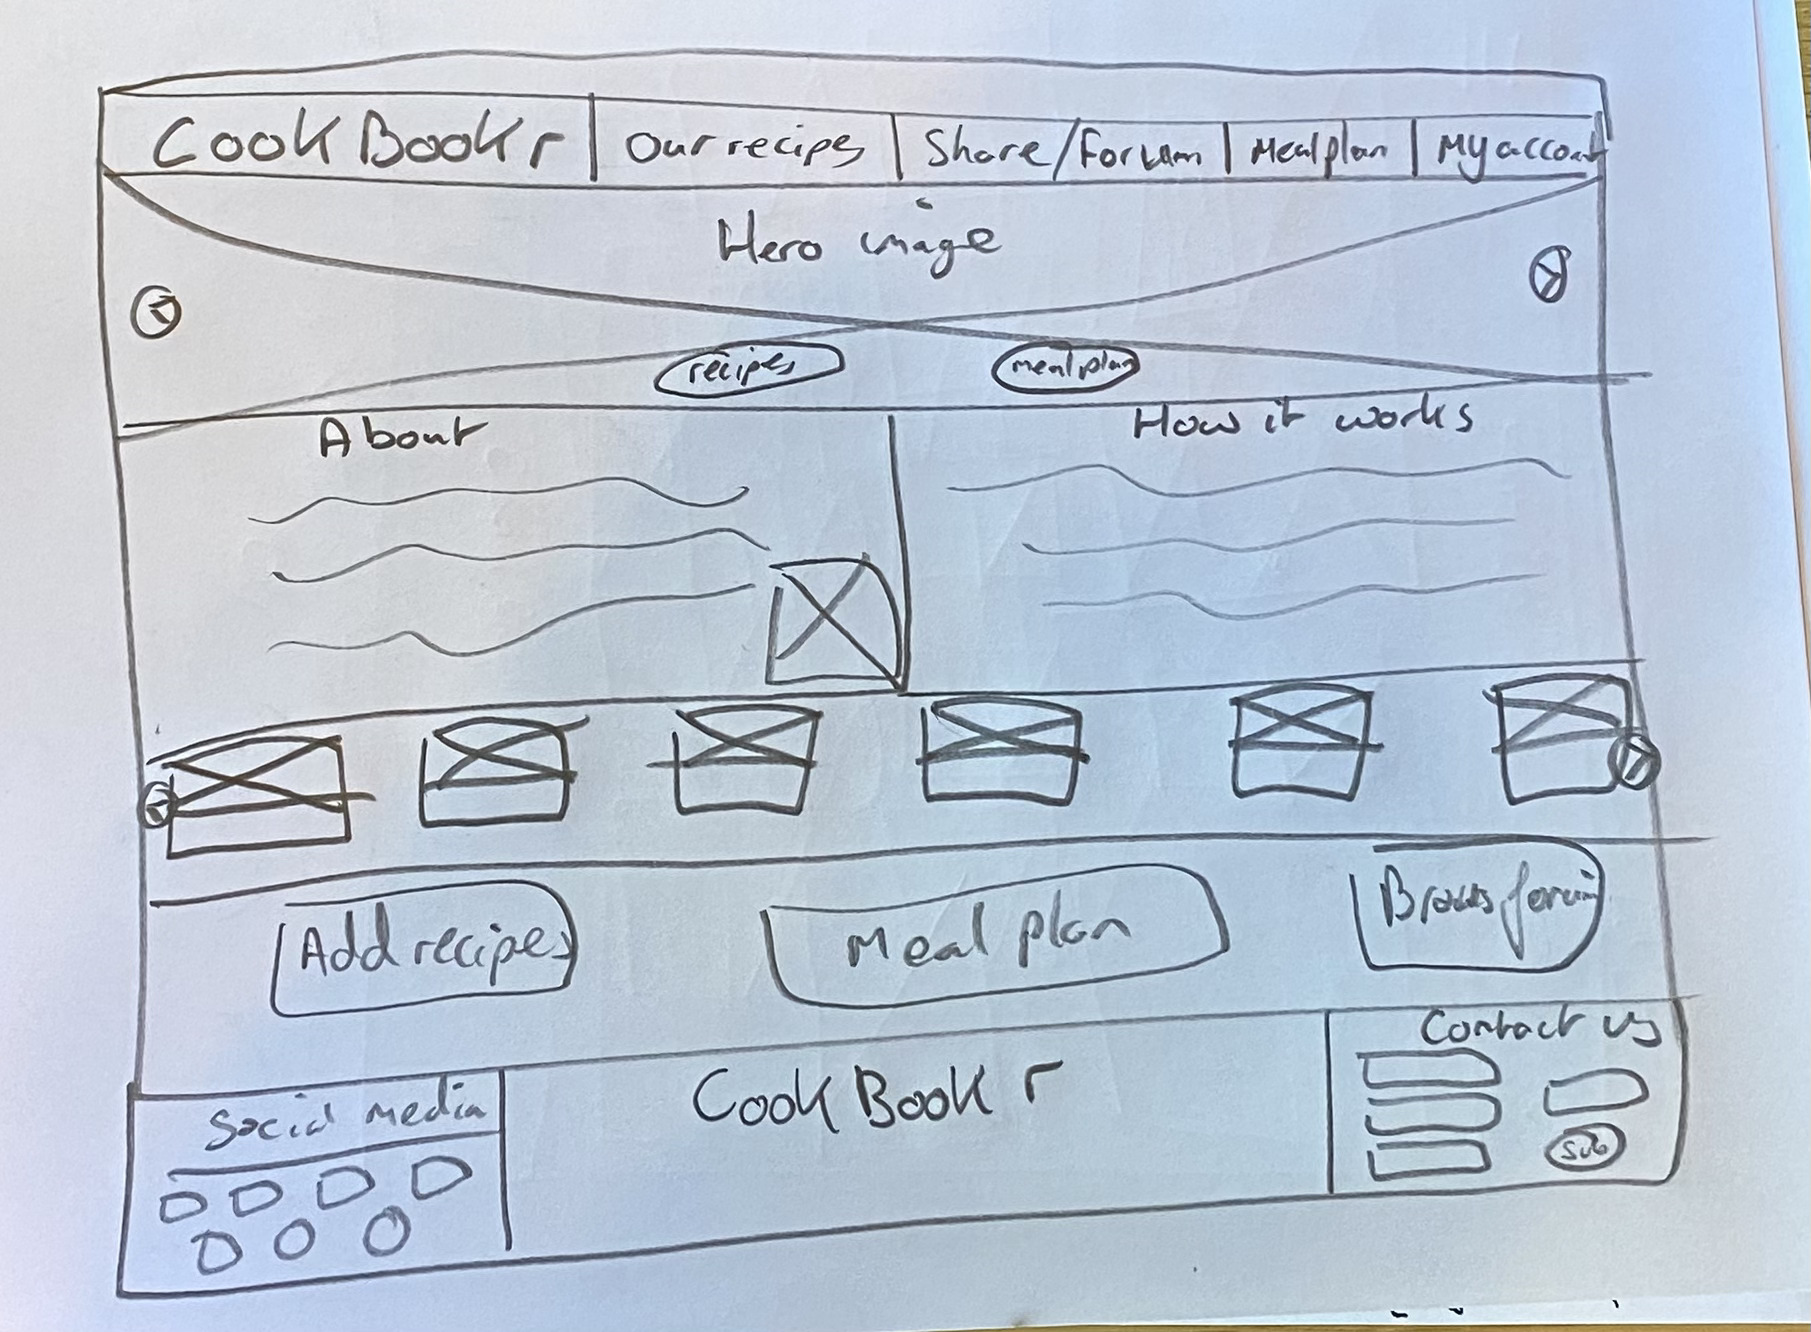 CookBookr Our recipes Share/Forum Mealplan My account
Hero image
recipes mealplan
About How it works
Add recipes Meal plan Browse forum
Contact us
CookBookr
Social media
Sub